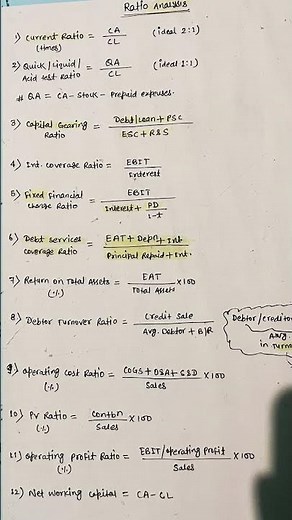 Ratio Analysis
1) Current Ratio = CA / CL (ideal 2:1)
(times)
2) Quick/Liquid/ Acid test Ratio = QA / CL (ideal 1:1)
# QA = CA - Stock - Prepaid expenses.
3) Capital Gearing Ratio = Debt/Loan + PSC / ESC + R&S
4) Int. coverage Ratio = EBIT / Interest
5) Fixed Financial charge Ratio = EBIT / Interest + PD / 1-t
6) Debt Services coverage Ratio = EAT + Depn + Int / Principal Repaid + Int.
7) Return on Total Assets = EAT / Total Assets × 100
(%)
8) Debtor Turnover Ratio = Credit Sale / Avg. Debtor + B/R
Debtor/credito
Avg.
in Turno
9) Operating Cost Ratio = COGS + O&A + S&D / Sales × 100
(%)
10) PV Ratio = Contbn / Sales × 100
(%)
11) Operating Profit Ratio = EBIT/Operating Profit / Sales × 100
(%)
12) Net Working Capital = CA - CL